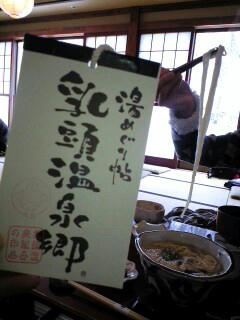 湯めぐり帖
乳頭温泉郷